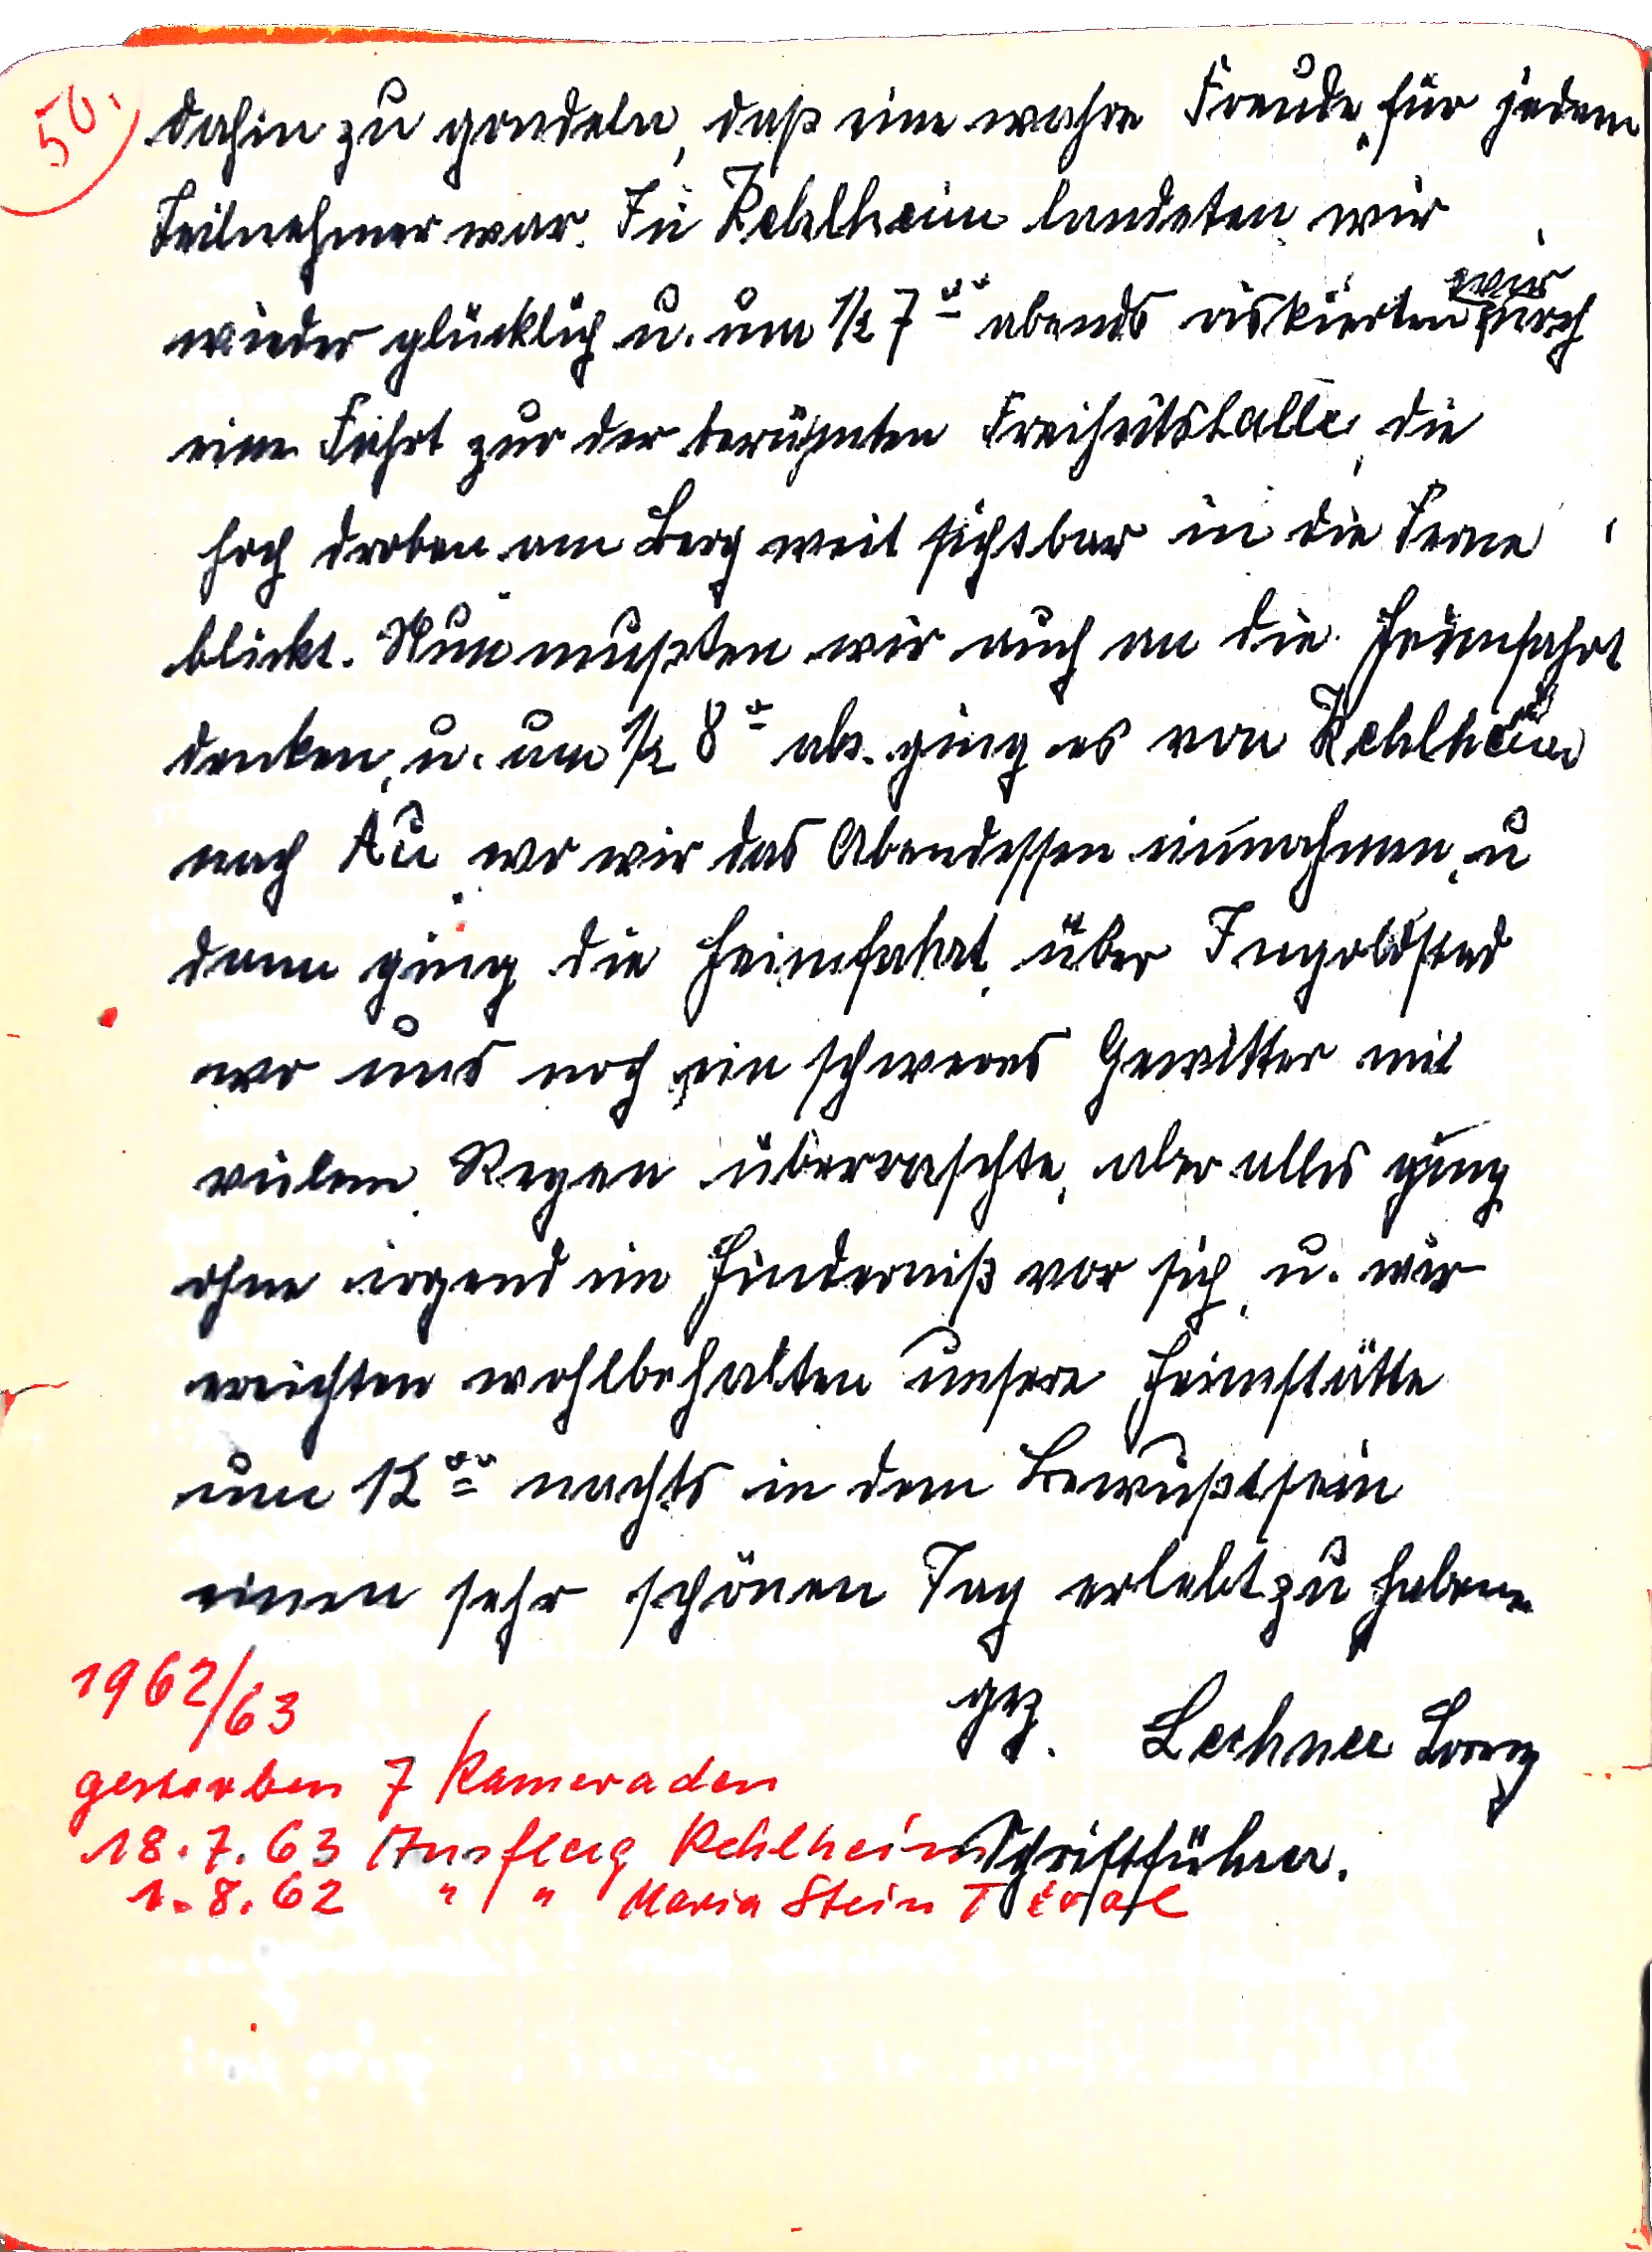 50.
dahin zu gondeln, daß eine wahre Freude für jeden
Teilnehmer war. In Kehlheim landeten wir
wieder glücklich u. um 1/2 7 abends riskierten wir noch
eine Fahrt zur der berühmten Freiheitshalle, die
hoch droben am Berg weit sichtbar in die Ferne
blickt. Nun mußten wir auch an die Heimfahrt
denken, u. um 1/2 8 ab. ging es von Kehlheim
nach Au wo wir das Abendessen einnahmen, u
dann ging die Heimfahrt über Ingoldstad
wo uns noch ein schweres Gewitter mit
vielem Regen überraschte, aber alles ging
ohne irgend ein Hinderniß vor sich, u. wir
ereichten wohlbehalten unsere Heimstätte
um 12 nachts in dem Bewußtsein
einen sehr schönen Tag erlebt zu haben.
gez. Lechner Lorenz
Schriftführer.
1962/63
gestorben 7 Kameraden
18.7.63 Ausflug Kehlheim
1.8.62 " " Maria Stein Tirol